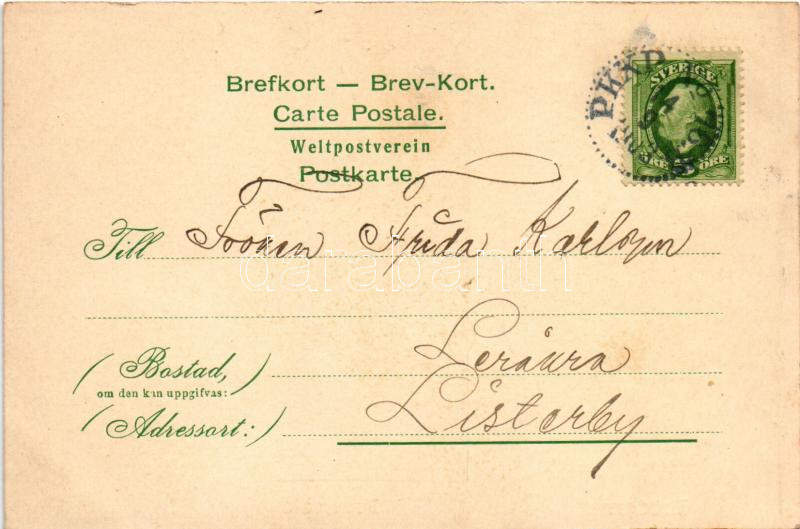 Brefkort — Brev-Kort.
Carte Postale.
Weltpostverein
Postkarte.
SVERIGE
PKXP
5
ÖRE
Till Fröken Frida Karlsson
darabanth
Leråkra
Listerby
(Bostad,
om den kan uppgifvas:)
(Adressort:)